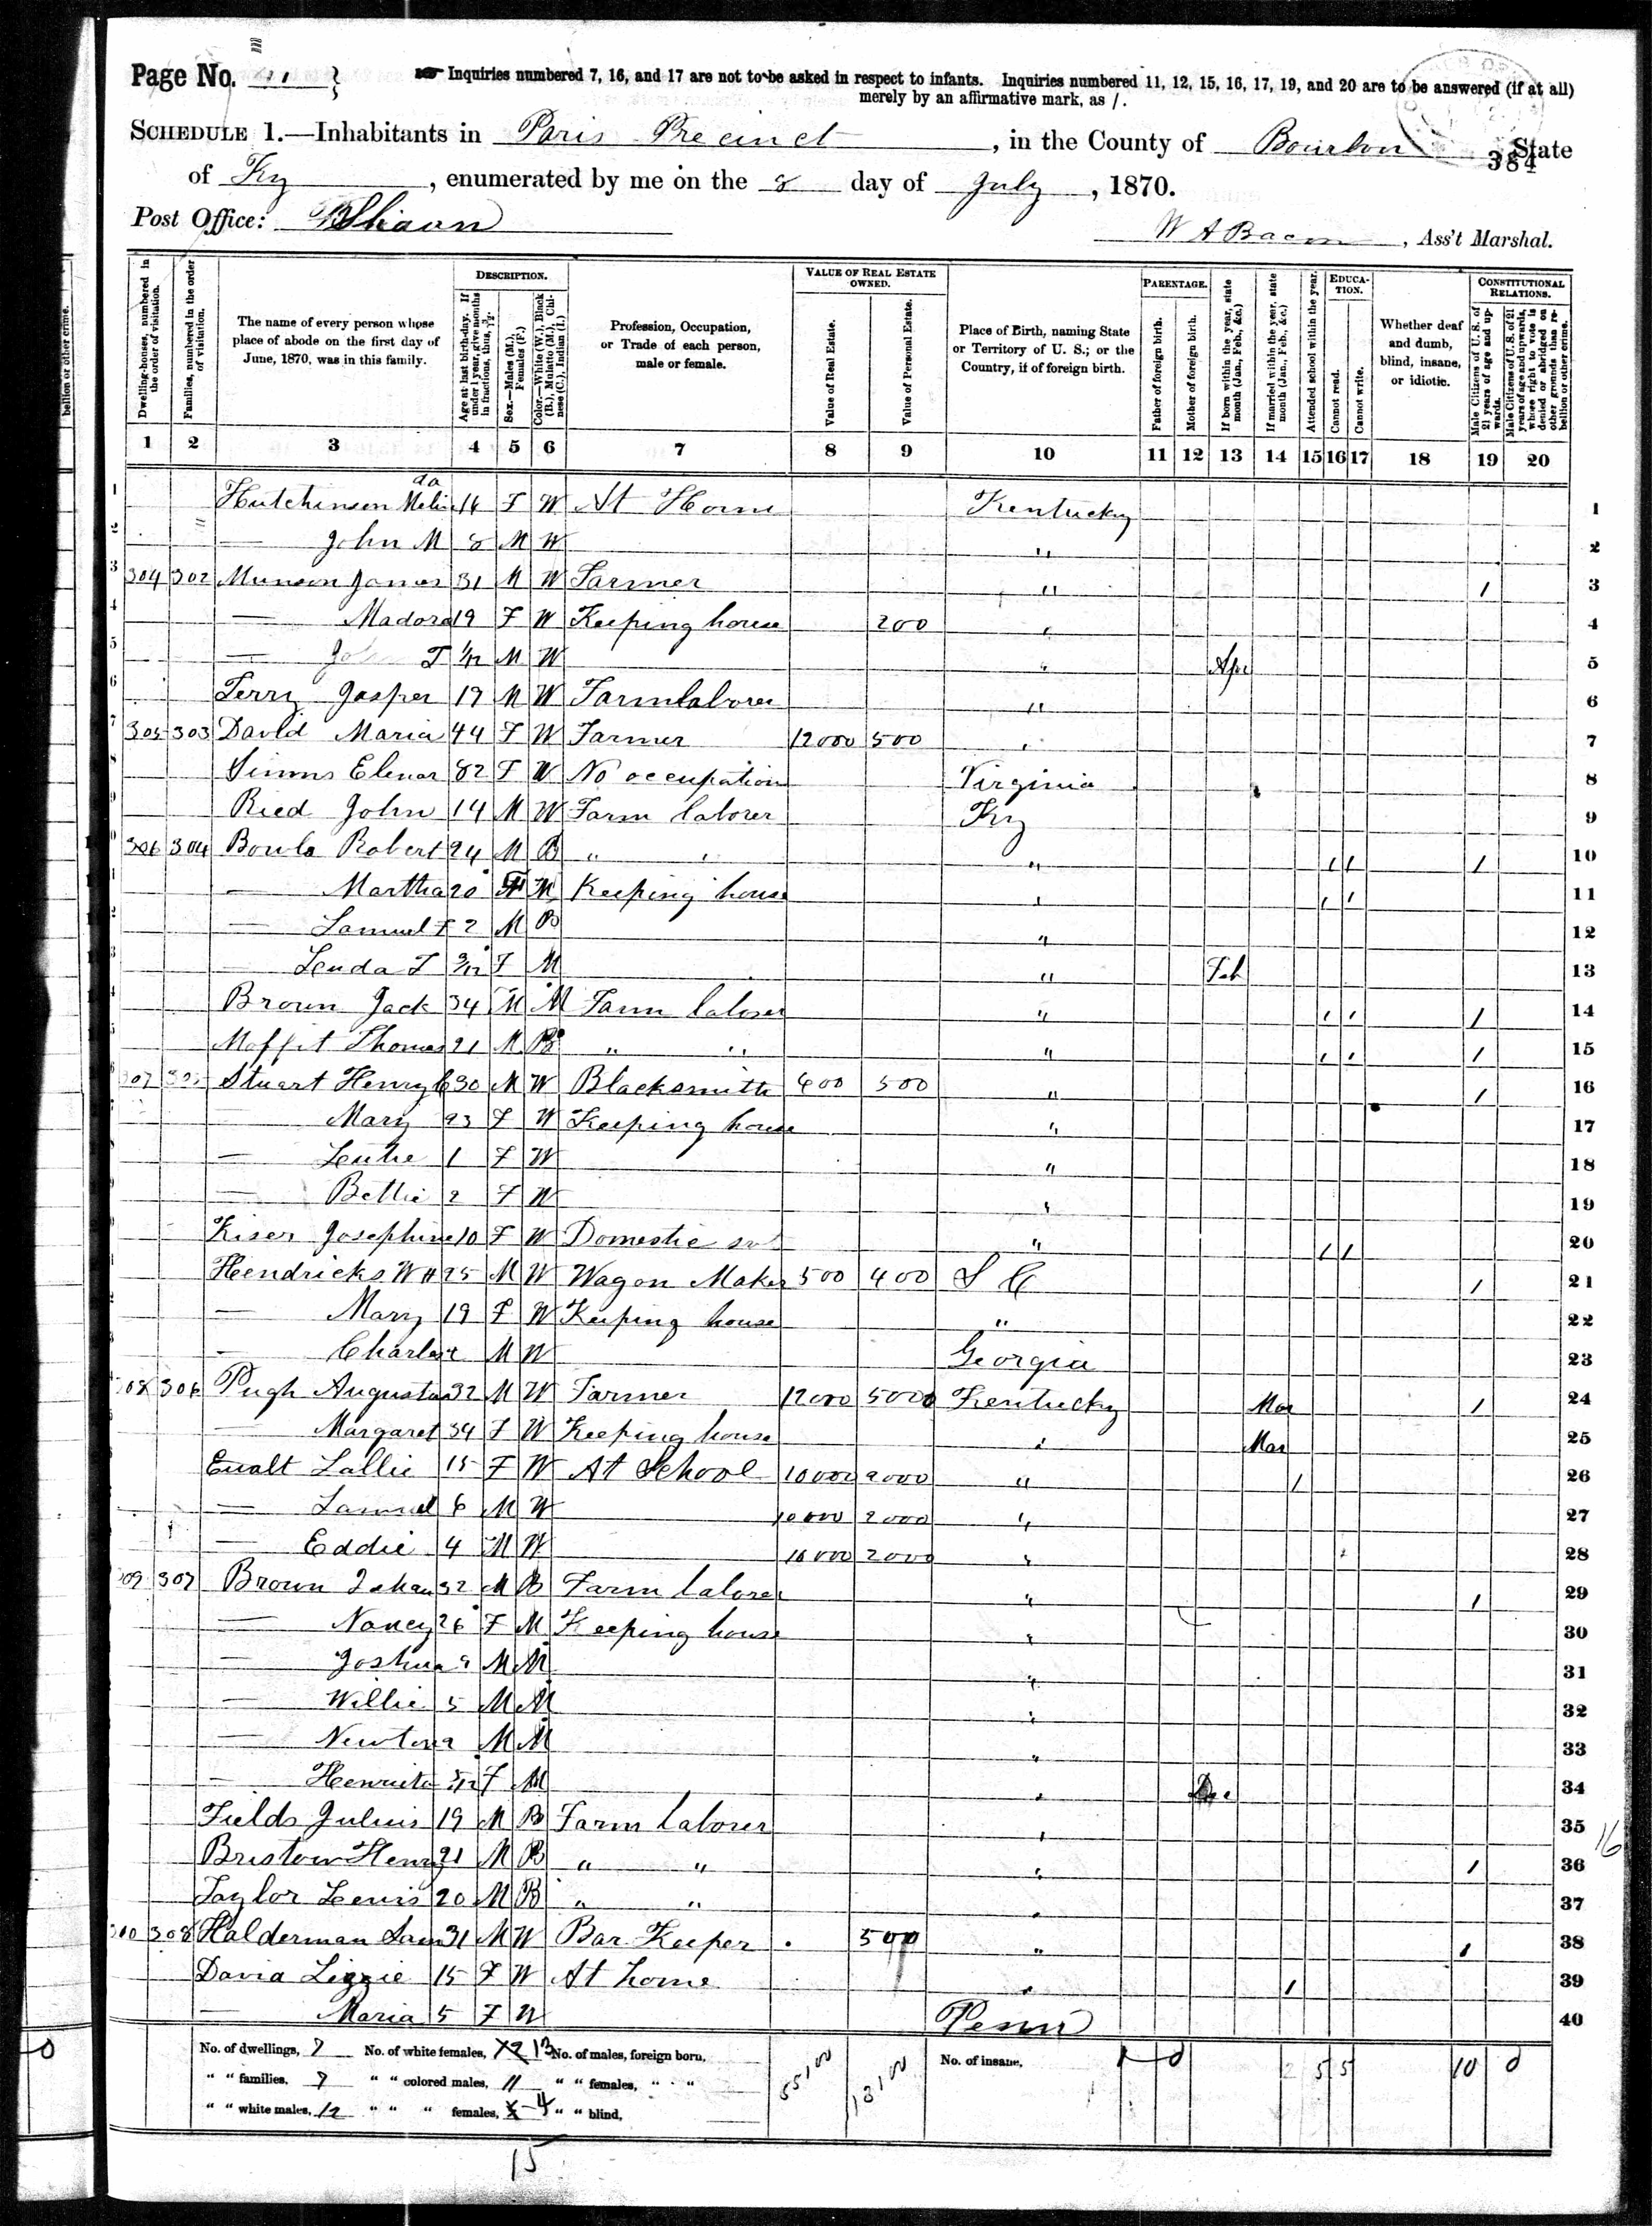 Page No. 11 }
Inquiries numbered 7, 16, and 17 are not to be asked in respect to infants. Inquiries numbered 11, 12, 15, 16, 17, 19, and 20 are to be answered (if at all) merely by an affirmative mark, as /.
SCHEDULE 1.—Inhabitants in Paris Precinct, in the County of Bourbon, State
384
of Ky, enumerated by me on the 8 day of July, 1870.
Post Office:
W A Bacon, Ass't Marshal.
Dwelling-houses, numbered in the order of visitation.
Families, numbered in the order of visitation.
The name of every person whose place of abode on the first day of June, 1870, was in this family.
DESCRIPTION.
Age at last birth-day. If under 1 year, give months in fractions, thus, 3/12.
Sex.—Males (M.), Females (F.)
Color.—White (W.), Black (B.), Mulatto (M.), Chinese (C.), Indian (I.)
Profession, Occupation, or Trade of each person, male or female.
VALUE OF REAL ESTATE OWNED.
Value of Real Estate.
Value of Personal Estate.
Place of Birth, naming State or Territory of U. S.; or the Country, if of foreign birth.
PARENTAGE.
Father of foreign birth.
Mother of foreign birth.
If born within the year, state month (Jan., Feb., &c.)
If married within the year, state month (Jan., Feb., &c.)
Attended school within the year.
EDUCATION.
Cannot read.
Cannot write.
Whether deaf and dumb, blind, insane, or idiotic.
CONSTITUTIONAL RELATIONS.
Male Citizens of U. S. of 21 years of age and upwards.
Male Citizens of U. S. of 21 years of age and upwards, whose right to vote is denied or abridged on other grounds than rebellion or other crime.
1 2 3 4 5 6 7 8 9 10 11 12 13 14 15 16 17 18 19 20
1 Hutchinson Melinda 16 F W At Home Kentucky 1
2 — John M 8 M W " 2
3 304 302 Munson James 31 M W Farmer " / 3
— Madora 19 F W Keeping house 200 " 4
— T M W " Apr 5
6 Terry Jasper 19 M W Farm laborer " 6
7 305 303 David Maria 44 F W Farmer 12000 500 " 7
Simms Elenor 82 F W No occupation Virginia 8
Ried John 14 M W Farm laborer Ky 9
306 304 Robert 24 M B " " " / / / 10
— Martha 20 F M Keeping house " / / 11
— Samuel F 2 M B " 12
— T 3/12 F M " Feb 13
Brown Jack 34 M M Farm laborer " / / / 14
Moffit Thomas 21 M B " " " / / / 15
307 305 Stuart Henry C 30 M W Blacksmith 600 500 " / 16
— Mary 23 F W Keeping house " 17
— 1 F W " 18
— Bettie 2 F W " 19
Kiser Josephine 10 F W Domestic " / / 20
Hendricks W H 25 M W Wagon Maker 500 400 S C / 21
— Mary 19 F W Keeping house " 22
— Charles 2 M W Georgia 23
308 306 Pugh Augustus 32 M W Farmer 12000 5000 Kentucky Mar / 24
— Margaret 34 F W Keeping house " Mar 25
Ewalt Sallie 15 F W At School 10000 2000 " / 26
— Samuel 6 M W 10000 2000 " 27
— Eddie 4 M W 10000 2000 " 28
309 307 Brown 32 M B Farm laborer " / 29
— Nancy 26 F M Keeping house " 30
— Joshua M M " 31
— Willie 5 M M " 32
— Newton 2 M M " 33
— Henrietta F M " Dec 34
Fields Julius 19 M B Farm laborer " 35
Bristow Henry 21 M B " " " / 36
Taylor Lewis 20 M B " " " 37
308 Halderman Sam 31 M W Bar Keeper 500 " / 38
Davia Lizzie 15 F W At home " / 39
— Maria 5 F W Penn 40
16
No. of dwellings, 7 No. of white females, 13 No. of males, foreign born, No. of insane,
" " families, 7 " " colored males, 11 " " females, " "
" " white males, 12 " " " females, 4 " " blind,
55,100 2 5 5 10 0
15
bellion or other crime.